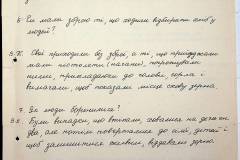 6. Чи мали зброю ті, що ходили відбирати хліб у людей?
В. Свої приходили без зброї, а ті, що приїжджали
мали пістолети (нагани), погрожували
ними, прикладаючи до голови, горла і
вимагали, щоб показали місце схову зерна.
7. Як люди боронилися?
В. Були випадки, що втікали, ховалися на день чи
два, але потім поверталися до сім'ї, дітей і
щоб залишитися живими, віддавали зерно.